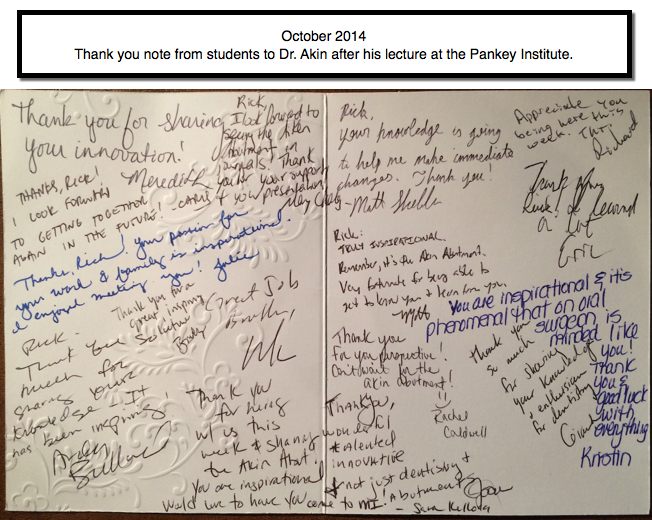 October 2014
Thank you note from students to Dr. Akin after his lecture at the Pankey Institute.
Thank you for sharing
your innovation!
Meredith
Rick,
I look forward to
seeing the Akin
Abutment in
journals! Thank
you for your support
& your presentation
THANKS, RICK!
I LOOK FORWARD
TO GETTING TOGETHER
AGAIN IN THE FUTURE!
Thanks, Rick! Your passion for
your work & family is inspirational.
I enjoyed meeting you! Julie
Thank you for a
great & inspiring
Brody
Great Job
Rick-
Thank you so
much for
sharing your
knowledge. It
has been inspiring!
Thank you
for being
w/ us this
week & sharing
the Akin Abut.!
You are inspirational
would love to have you come to MI!
- Sara
Rick,
Your knowledge is going
to help me make immediate
changes. Thank you!
- Matt
Appreciate you
being here this
week. Thx
Richard
Thank you
Rick! I learned
a lot
Eric
Rick:
TRULY INSPIRATIONAL.
Remember, it's the Akin Abutment.
Very fortunate for being able to
get to know you & learn from you
You are inspirational & it's
phenomenal that an oral
surgeon is
minded like
you!
Thank
you &
good luck
with
everything
Kristin
Thank you
for your perspective!
Can't wait for the
akin abutment!
Rachel
Caldwell
Thank you
so much
for sharing
your knowledge
& enthusiasm
for dentistry
Thank you,
wonderful
talented
innovative
& not just dentistry &
abutments!